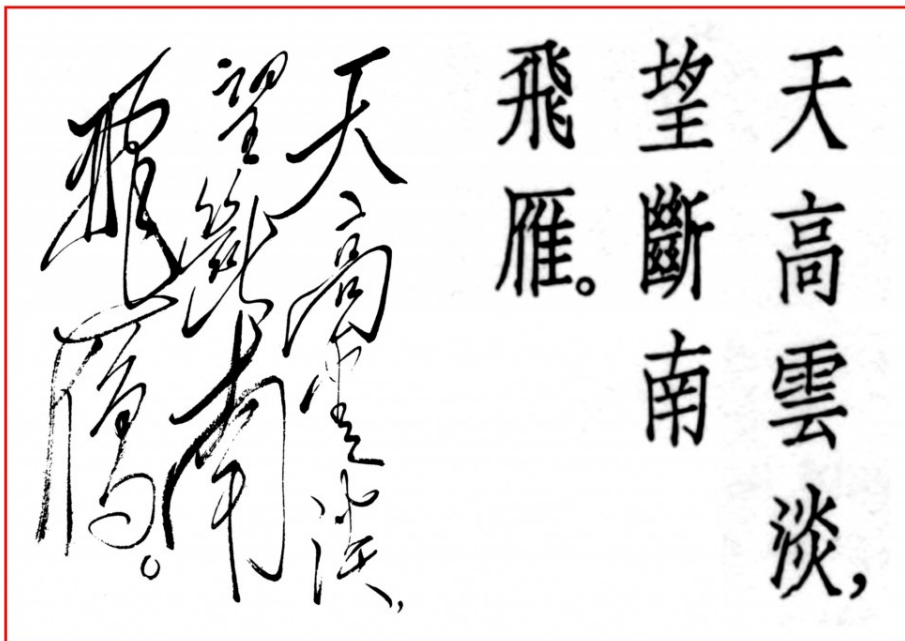 天高雲淡，
望斷南
飛雁。
天高雲淡，
望斷南
飛雁。